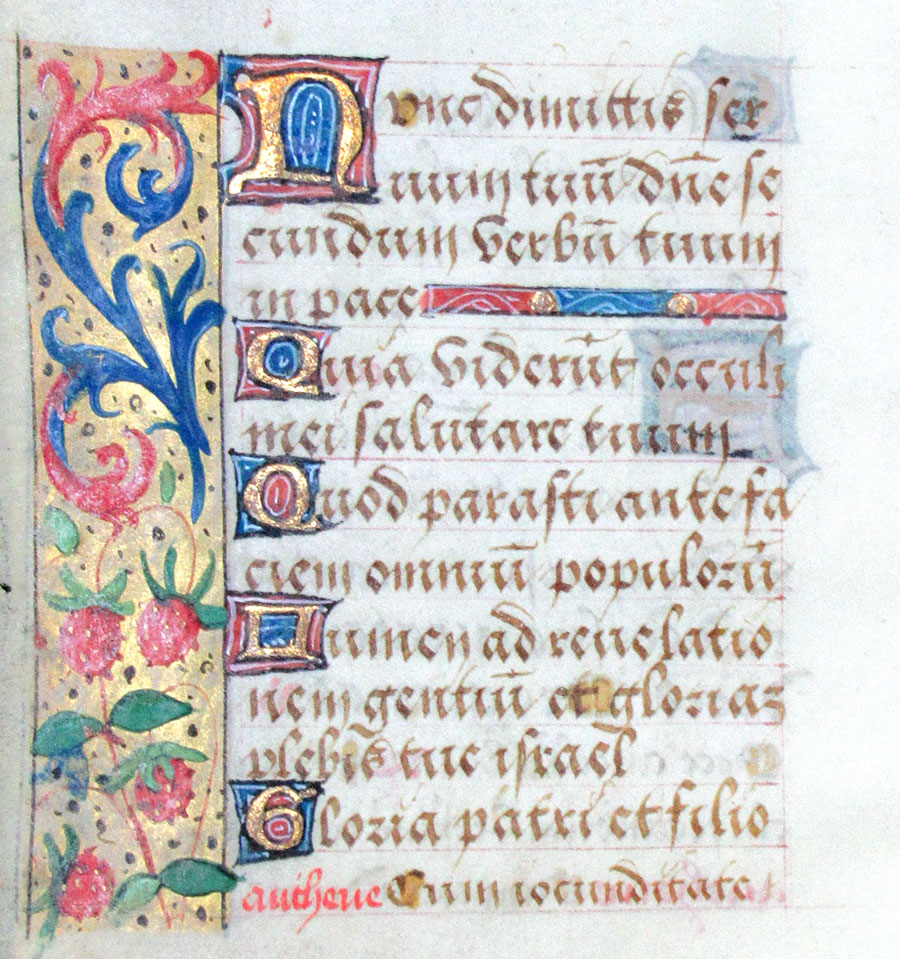 Nunc dimittis ser
uum tuū dn̄e se
cundum verbū tuum
in pace
Quia viderūt occuli
mei salutare tuum
Quod parasti ante fa
ciem omniū populorū
Lumen ad reuelatio
nem gentiū et gloriaz
plebis tue israel
Gloria patri et filio
anthene Cum iocunditate